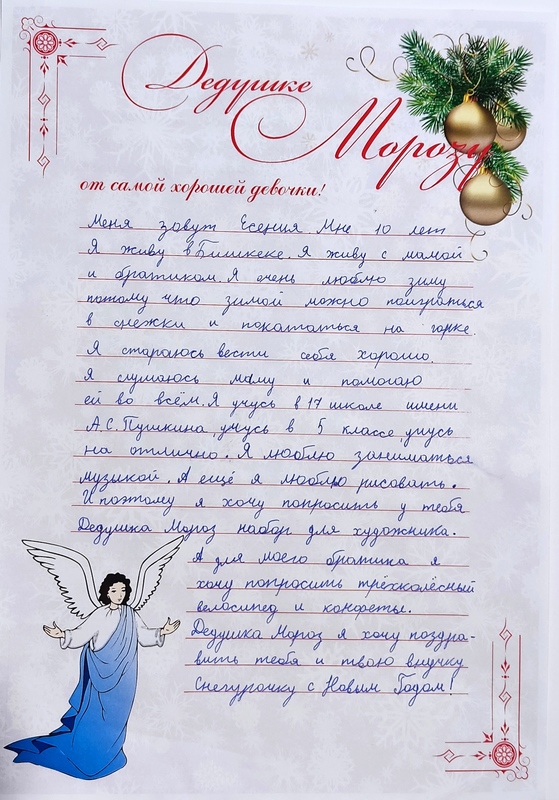 Дедушке
Морозу
от самой хорошей девочки!
Меня зовут Есения. Мне 10 лет
Я живу в Бишкеке. Я живу с мамой
и братиком. Я очень люблю зиму
потому что зимой можно поиграться
в снежки и покататься на горке.
Я стараюсь вести себя хорошо.
Я слушаюсь маму и помогаю
ей во всём. Я учусь в 17 школе имени
А.С. Пушкина, учусь в 5 классе, учусь
на отлично. Я люблю заниматься
музыкой. А ещё я люблю рисовать.
И поэтому я хочу попросить у тебя
Дедушка Мороз набор для художника.
А для моего братика я
хочу попросить трёхколёсный
велосипед и конфеты.
Дедушка Мороз я хочу поздра-
вить тебя и твою внучку
Снегурочку с Новым Годом!